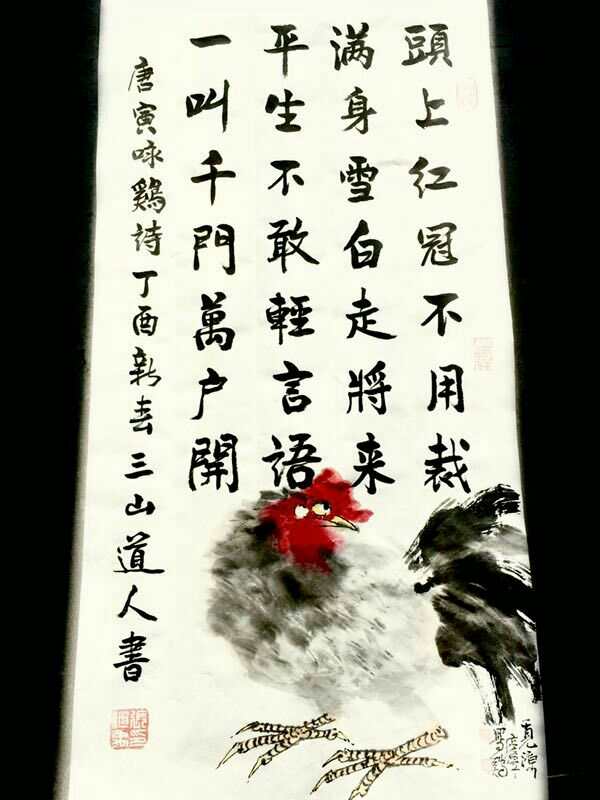 頭上红冠不用裁
满身雪白走將来
平生不敢輕言語
一叫千門萬户開
唐寅咏鷄詩丁酉新春三山道人書